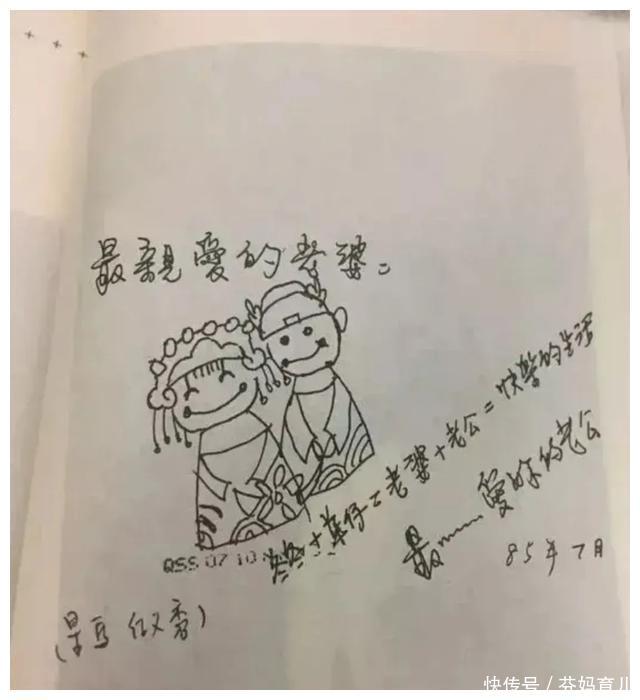 最親愛的老婆:
QSS 07 10
笑笑+華仔=老婆+老公=快樂的生活
最……愛妳的老公
85年7月
快传号/芬妈育儿